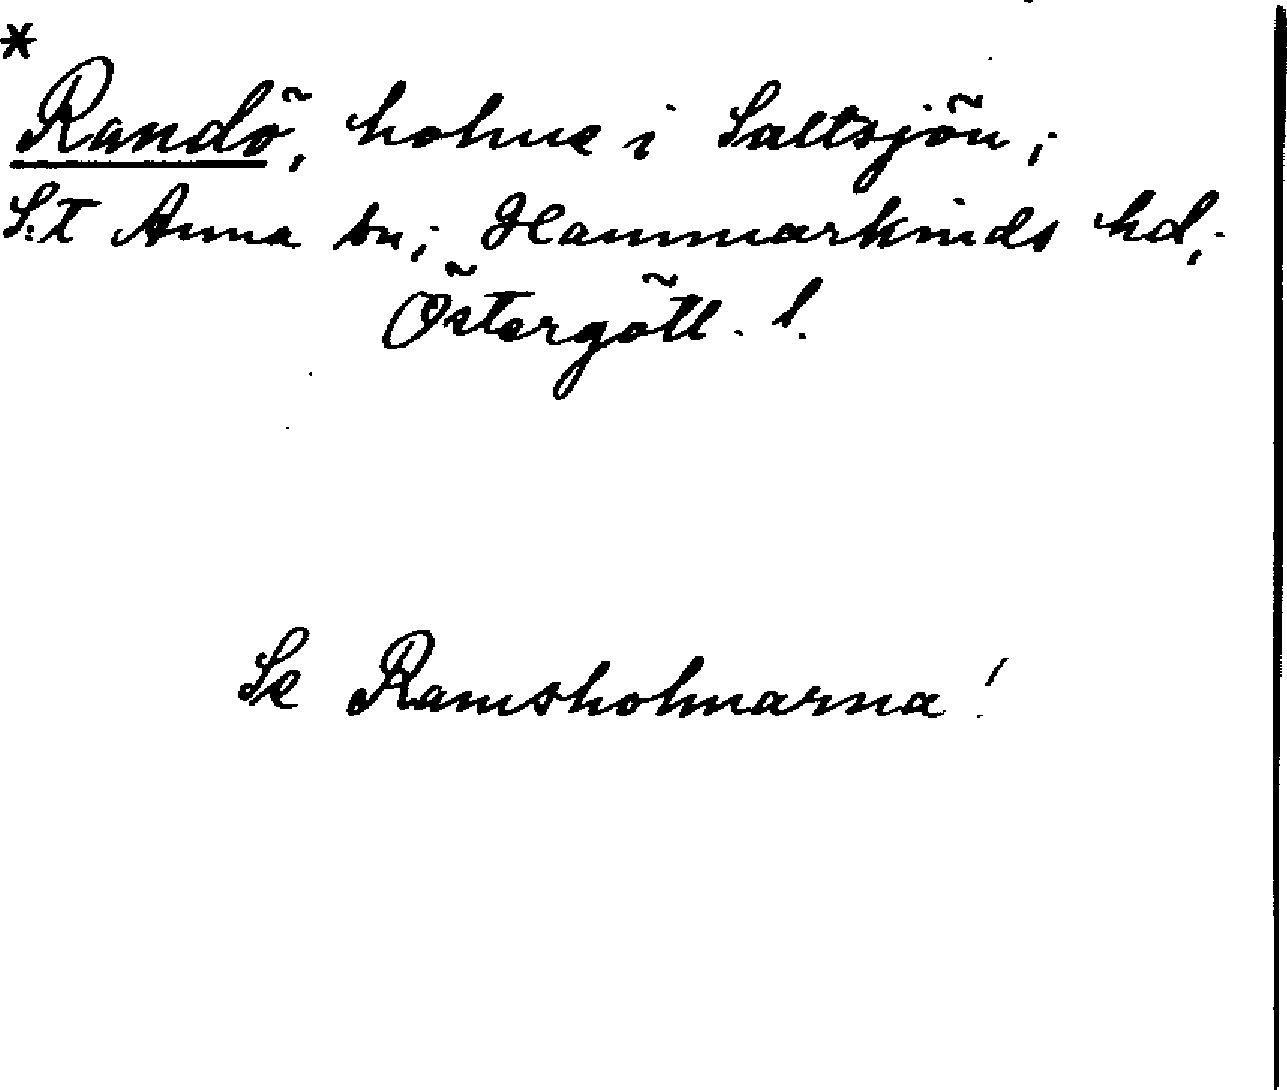 *
Randö, holme i Saltsjön;
S:t Anna sn; Hammarkinds hd,
Östergötl. l.
Se Ramsholmarna!